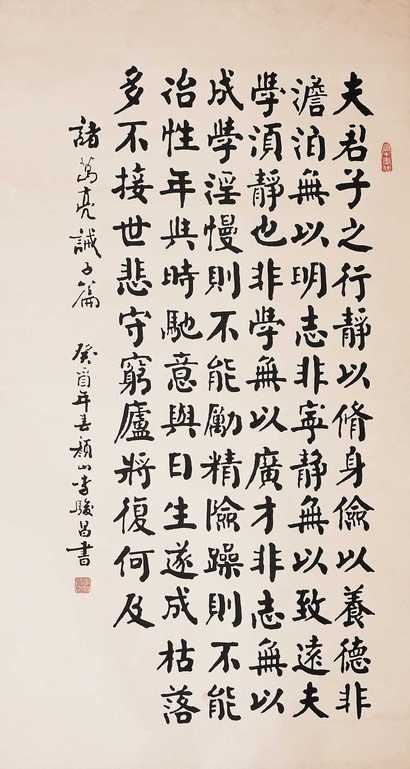 夫君子之行靜以脩身儉以養德非
澹泊無以明志非寧靜無以致遠夫
學須靜也非學無以廣才非志無以
成學淫慢則不能勵精險躁則不能
冶性年與時馳意與日生遂成枯落
多不接世悲守窮廬將復何及
諸葛亮誡子篇 癸酉年春顏山李駿昌書